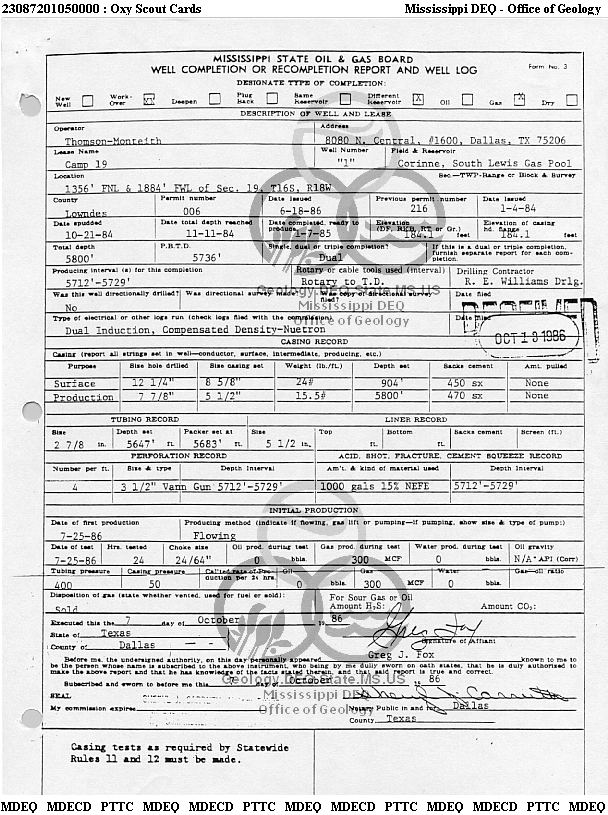 23087201050000 : Oxy Scout Cards Mississippi DEQ - Office of Geology
MISSISSIPPI STATE OIL & GAS BOARD
WELL COMPLETION OR RECOMPLETION REPORT AND WELL LOG Form No. 3
DESIGNATE TYPE OF COMPLETION:
New Well Work-Over XX Deepen Plug Back Same Reservoir Different Reservoir X Oil Gas X Dry
DESCRIPTION OF WELL AND LEASE
Operator Address
Thomson-Monteith 8080 N. Central, #1600, Dallas, TX 75206
Lease Name Well Number Field & Reservoir
Camp 19 "1" Corinne, South Lewis Gas Pool
Location Sec.—TWP-Range or Block & Survey
1356' FNL & 1884' FWL of Sec. 19, T16S, R18W
County Permit number Date Issued Previous permit number Date Issued
Lowndes 006 6-18-86 216 1-4-84
Date spudded Date total depth reached Date completed, ready to produce Elevation (DF, RKB, RT or Gr.) Elevation of casing hd. flange
10-21-84 11-11-84 1-7-85 184.1 feet 184.1 feet
Total depth P.B.T.D. Single, dual or triple completion? If this is a dual or triple completion, furnish separate report for each completion.
5800' 5736' Dual
Producing interval (s) for this completion Rotary or cable tools used (interval) Drilling Contractor
5712'-5729' Rotary to T.D. R. E. Williams Drlg.
Geology.DEQ.State.MS.US
Was this well directionally drilled? Was directional survey made? Was copy of directional survey filed? Date filed
No
Mississippi DEQ
Type of electrical or other logs run (check logs filed with the commission) Date filed
Dual Induction, Compensated Density-Nuetron
Office of Geology
OCT 13 1986
CASING RECORD
Casing (report all strings set in well—conductor, surface, intermediate, producing, etc.)
Purpose Size hole drilled Size casing set Weight (lb./ft.) Depth set Sacks cement Amt. pulled
Surface 12 1/4" 8 5/8" 24# 904' 450 sx None
Production 7 7/8" 5 1/2" 15.5# 5800' 470 sx None
TUBING RECORD LINER RECORD
Size Depth set Packer set at Size Top Bottom Sacks cement Screen (ft.)
2 7/8 in. 5647' ft. 5683' ft. 5 1/2 in. ft. ft.
PERFORATION RECORD ACID, SHOT, FRACTURE, CEMENT SQUEEZE RECORD
Number per ft. Size & type Depth Interval Am't. & kind of material used Depth Interval
4 3 1/2" Vann Gun 5712'-5729' 1000 gals 15% NEFE 5712'-5729'
INITIAL PRODUCTION
Date of first production Producing method (indicate if flowing, gas lift or pumping—if pumping, show size & type of pump:)
7-25-86 Flowing
Date of test Hrs. tested Choke size Oil prod. during test Gas prod. during test Water prod. during test Oil gravity
7-25-86 24 24/64" 0 bbls. 300 MCF 0 bbls. N/A° API (Corr)
Tubing pressure Casing pressure Cal'ted rate of Production per 24 hrs. Oil Gas Water Gas—oil ratio
400 50 0 bbls. 300 MCF 0 bbls.
Disposition of gas (state whether vented, used for fuel or sold): For Sour Gas or Oil
Sold Amount H2S: Amount CO2:
Executed this the 7 day of October 19 86
State of Texas Greg Fox
County of Dallas Signature of Affiant
Greg J. Fox
Before me, the undersigned authority, on this day personally appeared known to me to
be the person whose name is subscribed to the above instrument, who being by me dully sworn on oath states, that he is duly authorized to
make the above report and that he has knowledge of the facts stated therein, and that said report is true and correct.
Subscribed and sworn to before me this 7 day of October 86
Geology.DEQ.State.MS.US
SEAL
Mississippi DEQ
My commission expires Notary Public in and for Dallas
Office of Geology
County Texas
Casing tests as required by Statewide
Rules 11 and 12 must be made.
MDEQ MDECD PTTC MDEQ MDECD PTTC MDEQ MDECD PTTC MDEQ MDECD PTTC MDEQ